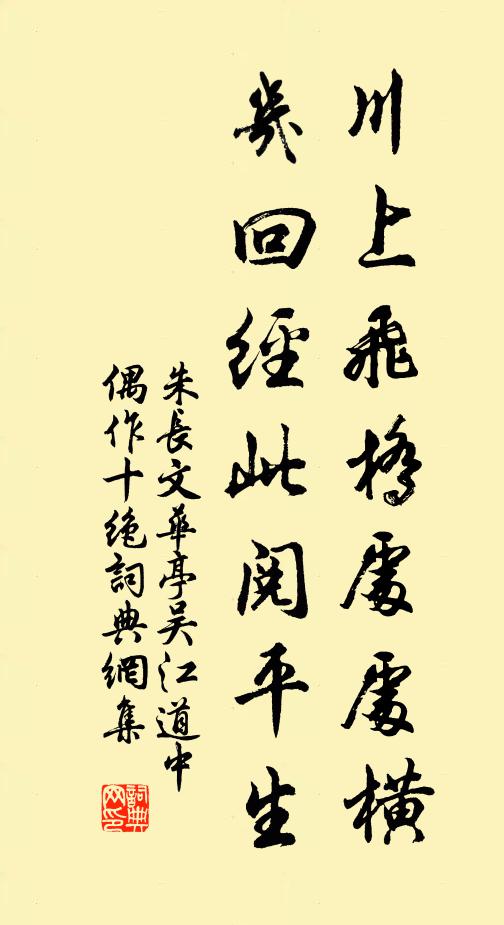 川上飛橋處處橫
幾回經此閱平生
朱長文華亭吳江道中
偶作十絶詞典網集
詞典
網印